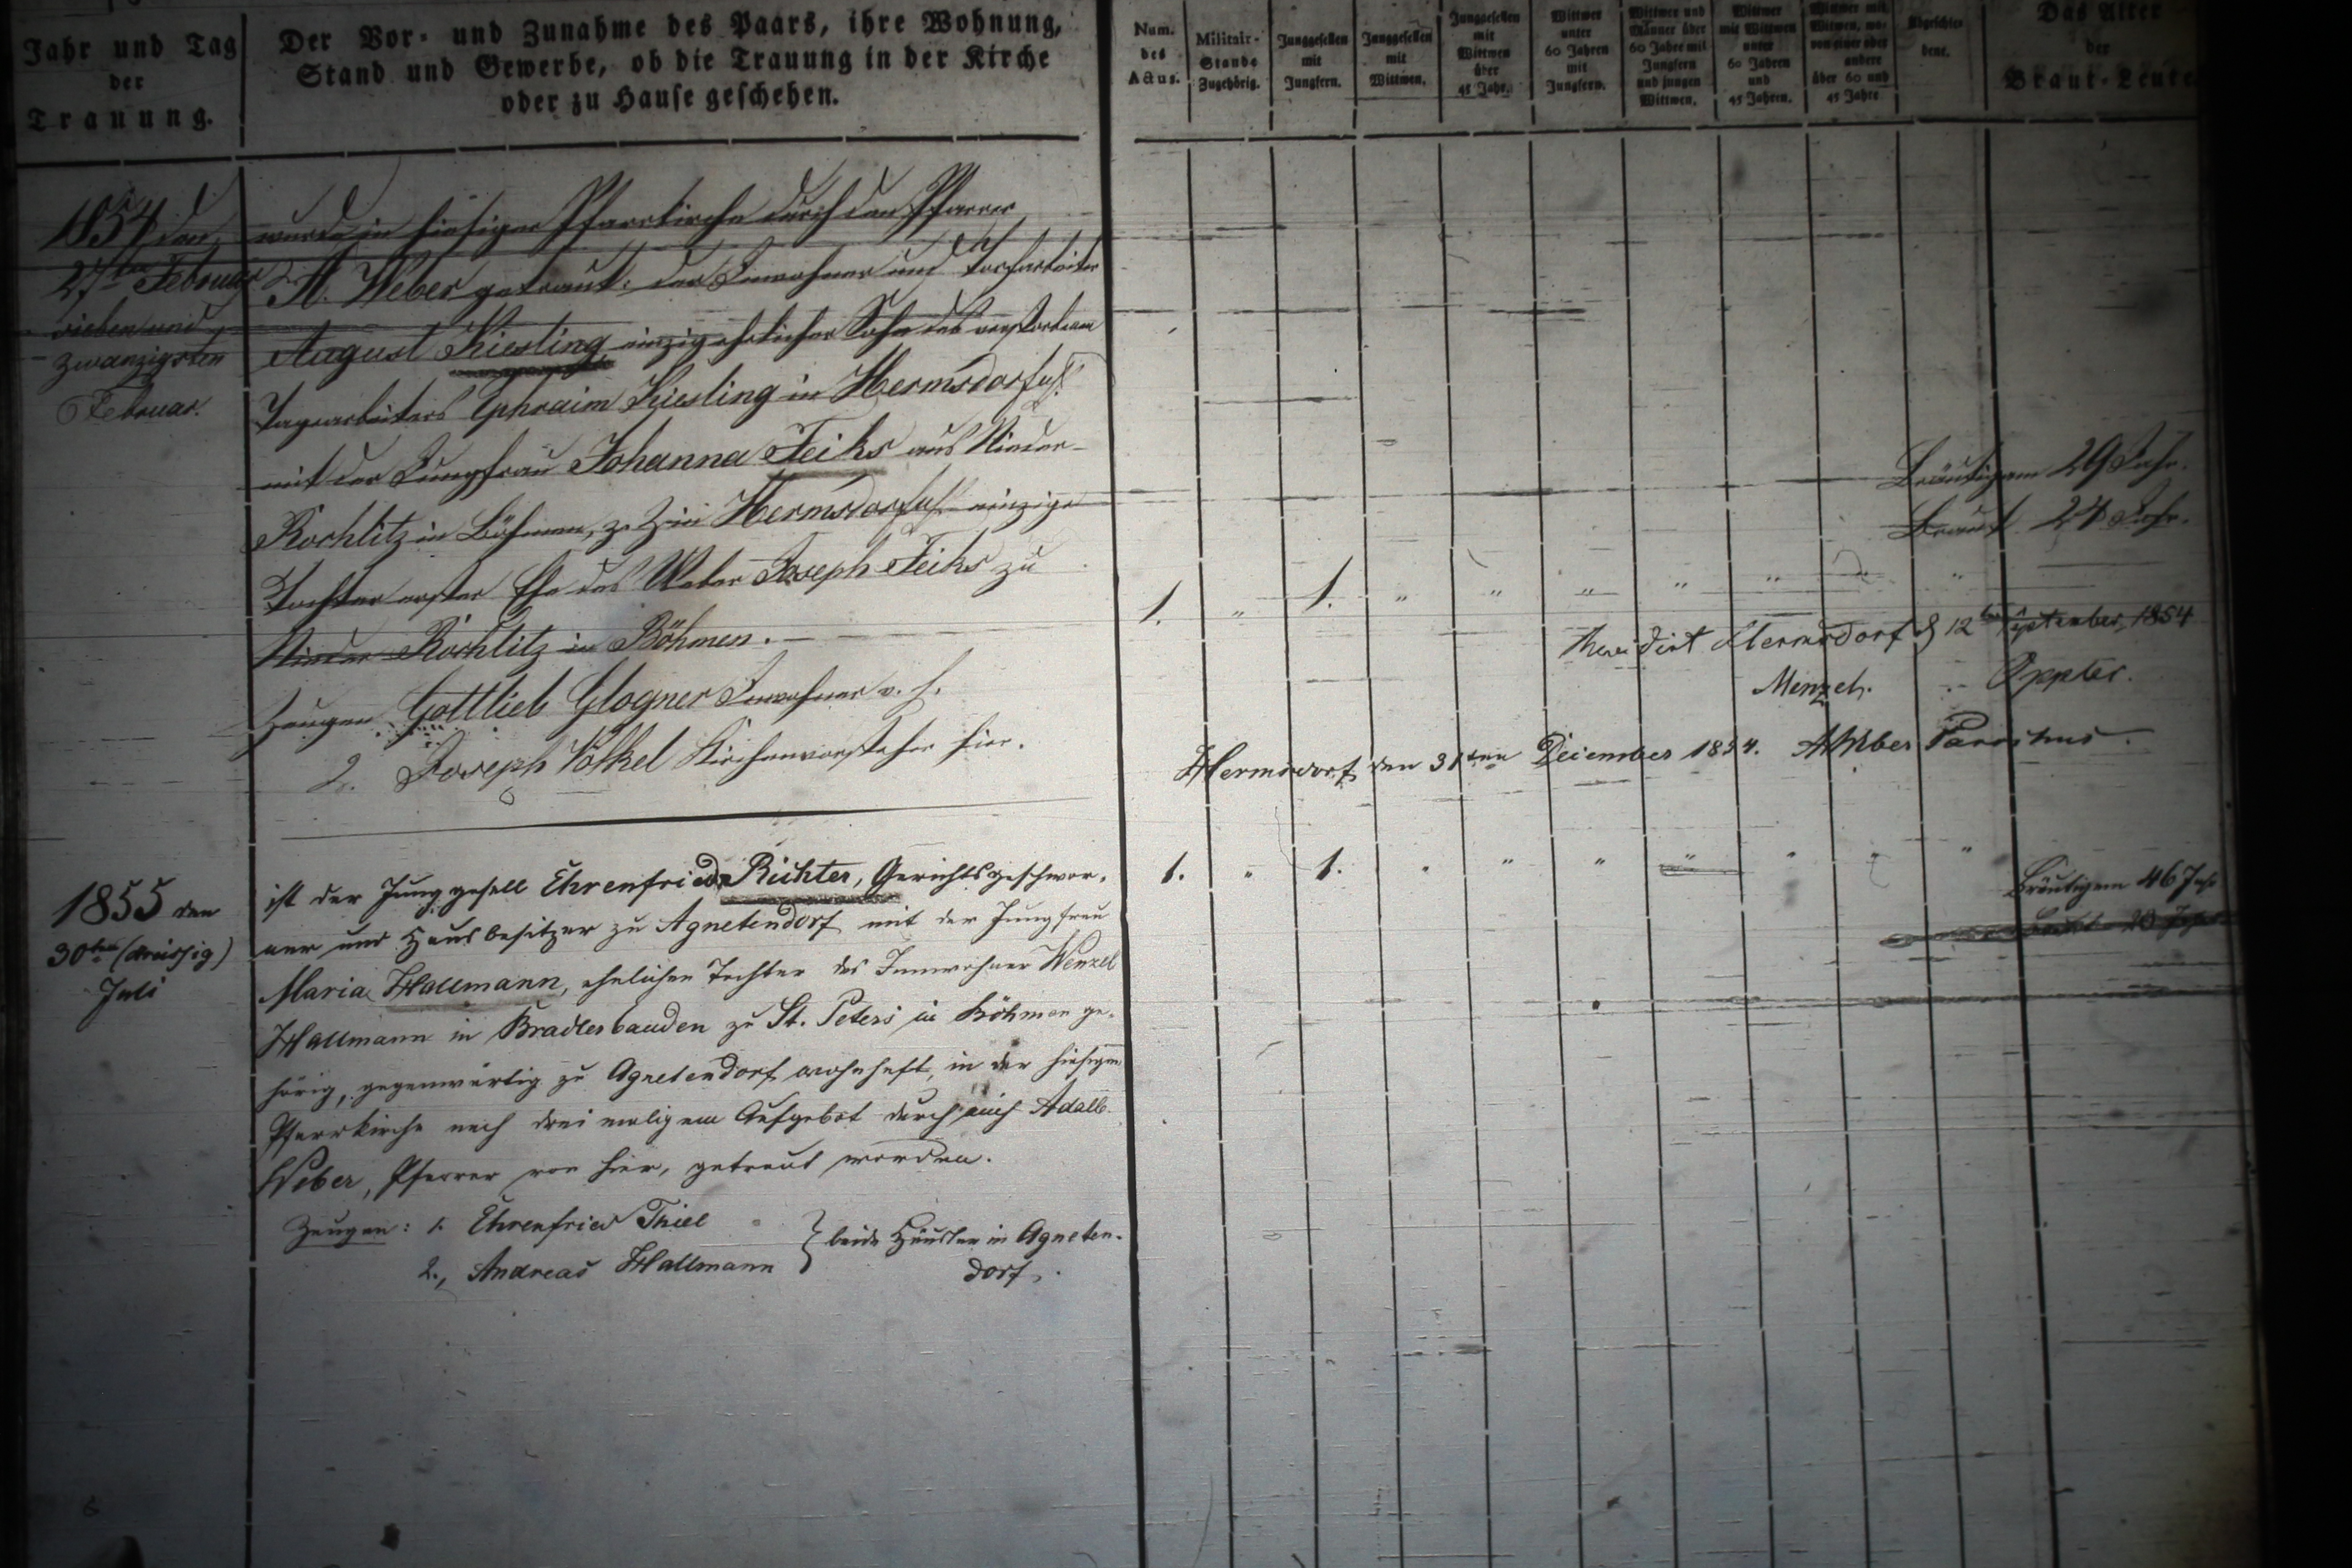 Jahr und Tag
der
Trauung.
Der Vor- und Zunahme des Paars, ihre Wohnung,
Stand und Gewerbe, ob die Trauung in der Kirche
oder zu Hause geschehen.
Num.
des
Actus.
Militair-
Stande
Zugehörig.
Junggesellen
mit
Jungfern.
Junggesellen
mit
Wittwen.
Junggesellen
mit
Wittwen
über
45 Jahr.
Wittwer
unter
60 Jahren
mit
Jungfern.
Wittwer und
Männer über
60 Jahre mit
Jungfern
und jungen
Wittwen.
Wittwer
mit Wittwen
unter
60 Jahren
und
45 Jahren.
Wittwer mit
Witwen, wo-
von einer oder
andere
über 60 und
45 Jahre
Abgeschie-
dene.
Das Alter
der
Braut-Leute
1854 den
27ten Februar
sieben und
zwanzigsten
Februar.
wurde in hiesiger Pfarrkirche durch den Pfarrer
A. Weber getraut: der Inwohner und Torfarbeiter
August Kiesling, einzig ehelicher Sohn des verstorbenen
Tagearbeiters Ephraim Kiesling in Hermsdorf
mit der Jungfrau Johanna Feiks aus Nieder-
Rochlitz in Böhmen, z. Z. in Hermsdorf einzige
Tochter erster Ehe des Weber Joseph Feiks zu
Nieder Rochlitz in Böhmen. —
Zeugen Gottlieb Glogner Inwohner v. h.
2. Joseph Völkel Kirchenvorsteher hier.
Bräutigam 29 Jahr.
Braut 24 Jahr.
1. " 1. " " " " " " "
Revidirt Hermsdorf d 12ten September 1854
Menzel. Oppler.
Hermsdorf den 31ten December 1854. A Weber Parochus.
1855 den
30ten (dreissig)
Juli
ist der Junggesell Ehrenfried Richter, Gerichtsgeschwor-
ner und Hausbesitzer zu Agnetendorf mit der Jungfrau
Maria Hallmann, ehelichen Tochter des Innwohner Wenzel
Hallmann in Bradlerbauden zu St. Peters in Böhmen ge-
hörig, gegenwärtig zu Agnetendorf wohnhaft, in der hiesigen
Pfarrkirche nach dreimaligem Aufgebot durch mich Adalb.
Weber, Pfarrer von hier, getraut worden.
Zeugen: 1. Ehrenfried Thiel
2., Andreas Hallmann
} beide Häusler in Agneten-
dorf.
1. " 1. " " " " " " "
Bräutigam 46 Jahr